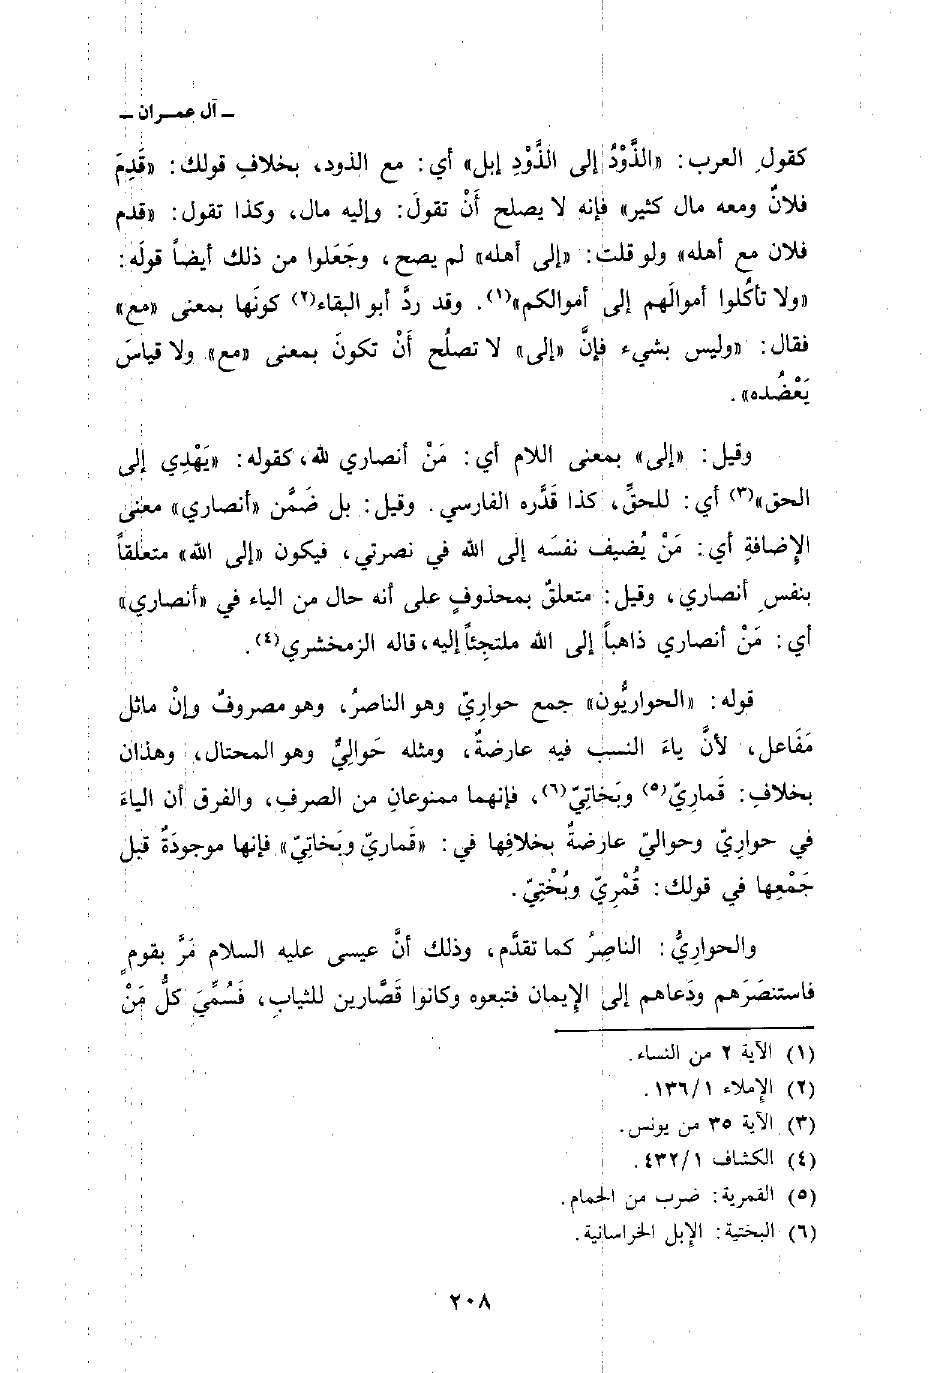 ـ آل عمـران ـ
كقولِ العرب: «الذَّوْدُ إلى الذَّوْدِ إبل» أي: مع الذود، بخلافِ قولك: «قَدِمَ
فلانٌ ومعه مال كثير» فإنه لا يصلح أَنْ تقولَ: وإليه مال، وكذا تقول: «قدم
فلان مع أهله» ولو قلت: «إلى أهله» لم يصح، وجَعَلوا من ذلك أيضاً قولَه:
«ولا تأكُلوا أموالَهم إلى أموالكم»(١). وقد ردَّ أبو البقاء(٢) كونَها بمعنى «مع»
فقال: «وليس بشيء فإنَّ «إلى» لا تصلُح أَنْ تكونَ بمعنى «مع» ولا قياسَ
يَعْضُده».
وقيل: «إلى» بمعنى اللام أي: مَنْ أنصاري لله، كقوله: «يَهْدِي إلى
الحق»(٣) أي: للحقِّ، كذا قَدَّره الفارسي. وقيل: بل ضَمَّن «أنصاري» معنى
الإِضافةِ أي: مَنْ يُضيف نفسَه إلى الله في نصرتي، فيكون «إلى الله» متعلقاً
بنفسِ أنصاري، وقيل: متعلقٌ بمحذوفٍ على أنه حال من الياء في «أنصاري»
أي: مَنْ أنصاري ذاهباً إلى الله ملتجِئاً إليه، قاله الزمخشري(٤).
قوله: «الحواريُّون» جمع حوارِيّ وهو الناصرُ، وهو مصروفٌ وإنْ ماثل
مَفَاعل، لأنَّ ياءَ النسب فيه عارضةٌ، ومثله حَوالِيٌّ وهو المحتال، وهذان
بخلافِ: قَمارِيّ(٥) وبَخَاتِيّ(٦)، فإنهما ممنوعانِ من الصرفِ، والفرق أن الياءَ
في حوارِيّ وحواليّ عارضةٌ بخلافِها في: «قَماريّ وبَخاتِيّ» فإنها موجودَةٌ قبل
جَمْعِها في قولك: قُمْرِيّ وبُخْتِيّ.
والحوارِيُّ: الناصِرُ كما تقدَّم، وذلك أنَّ عيسى عليه السلام مَرَّ بقومٍ
فاستنصَرَهم ودَعاهم إلى الإِيمان فتبعوه وكانوا قَصَّارين للثيابِ، فَسُمِّيَ كلُّ مَنْ
(١) الآية ٢ من النساء.
(٢) الإِملاء ١٣٦/١.
(٣) الآية ٣٥ من يونس.
(٤) الكشاف ٤٣٢/١.
(٥) القمرية: ضرب من الحمام.
(٦) البختية: الإِبل الخراسانية.
٢٠٨